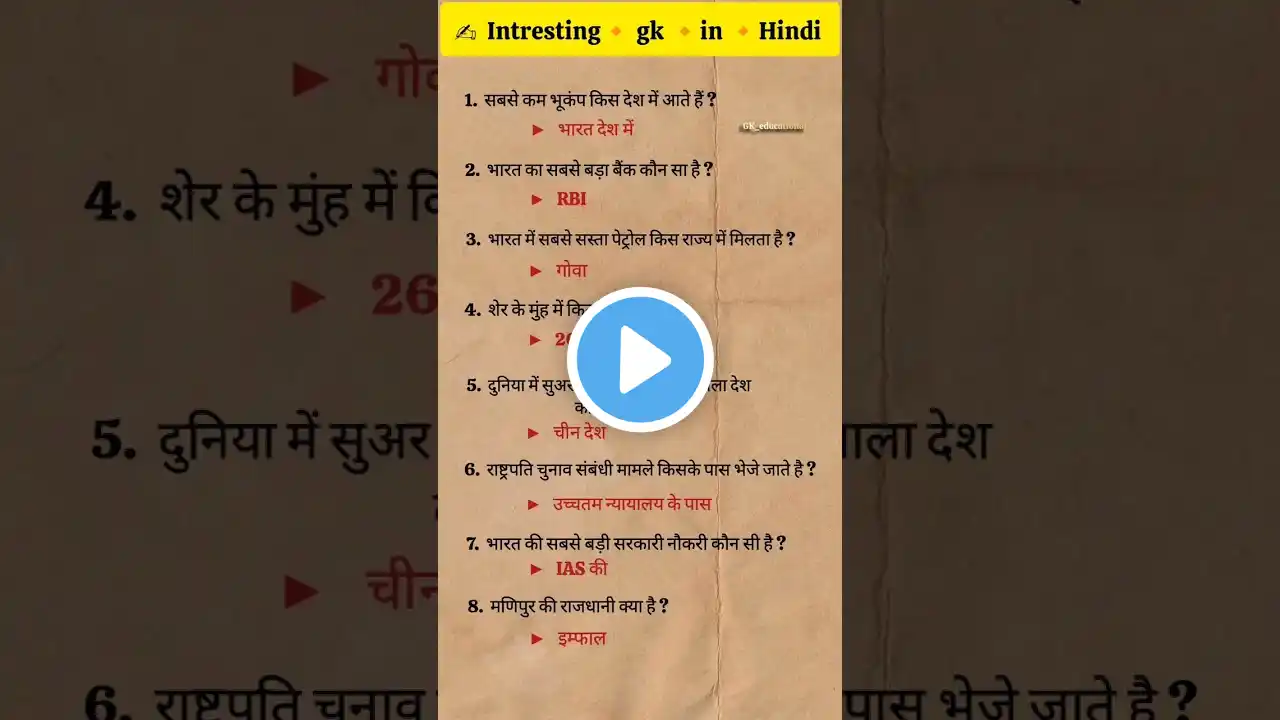 ✍ Intresting 🔸 gk 🔸 in 🔸 Hindi
1. सबसे कम भूकंप किस देश में आते हैं ?
► भारत देश में
GK_educationa
2. भारत का सबसे बड़ा बैंक कौन सा है ?
► RBI
3. भारत में सबसे सस्ता पेट्रोल किस राज्य में मिलता है ?
► गोवा
4. शेर के मुंह में
► 26
5. दुनिया में सुअर देश
► चीन देश
6. राष्ट्रपति चुनाव संबंधी मामले किसके पास भेजे जाते है ?
► उच्चतम न्यायालय के पास
7. भारत की सबसे बड़ी सरकारी नौकरी कौन सी है ?
► IAS की
8. मणिपुर की राजधानी क्या है ?
► इम्फाल